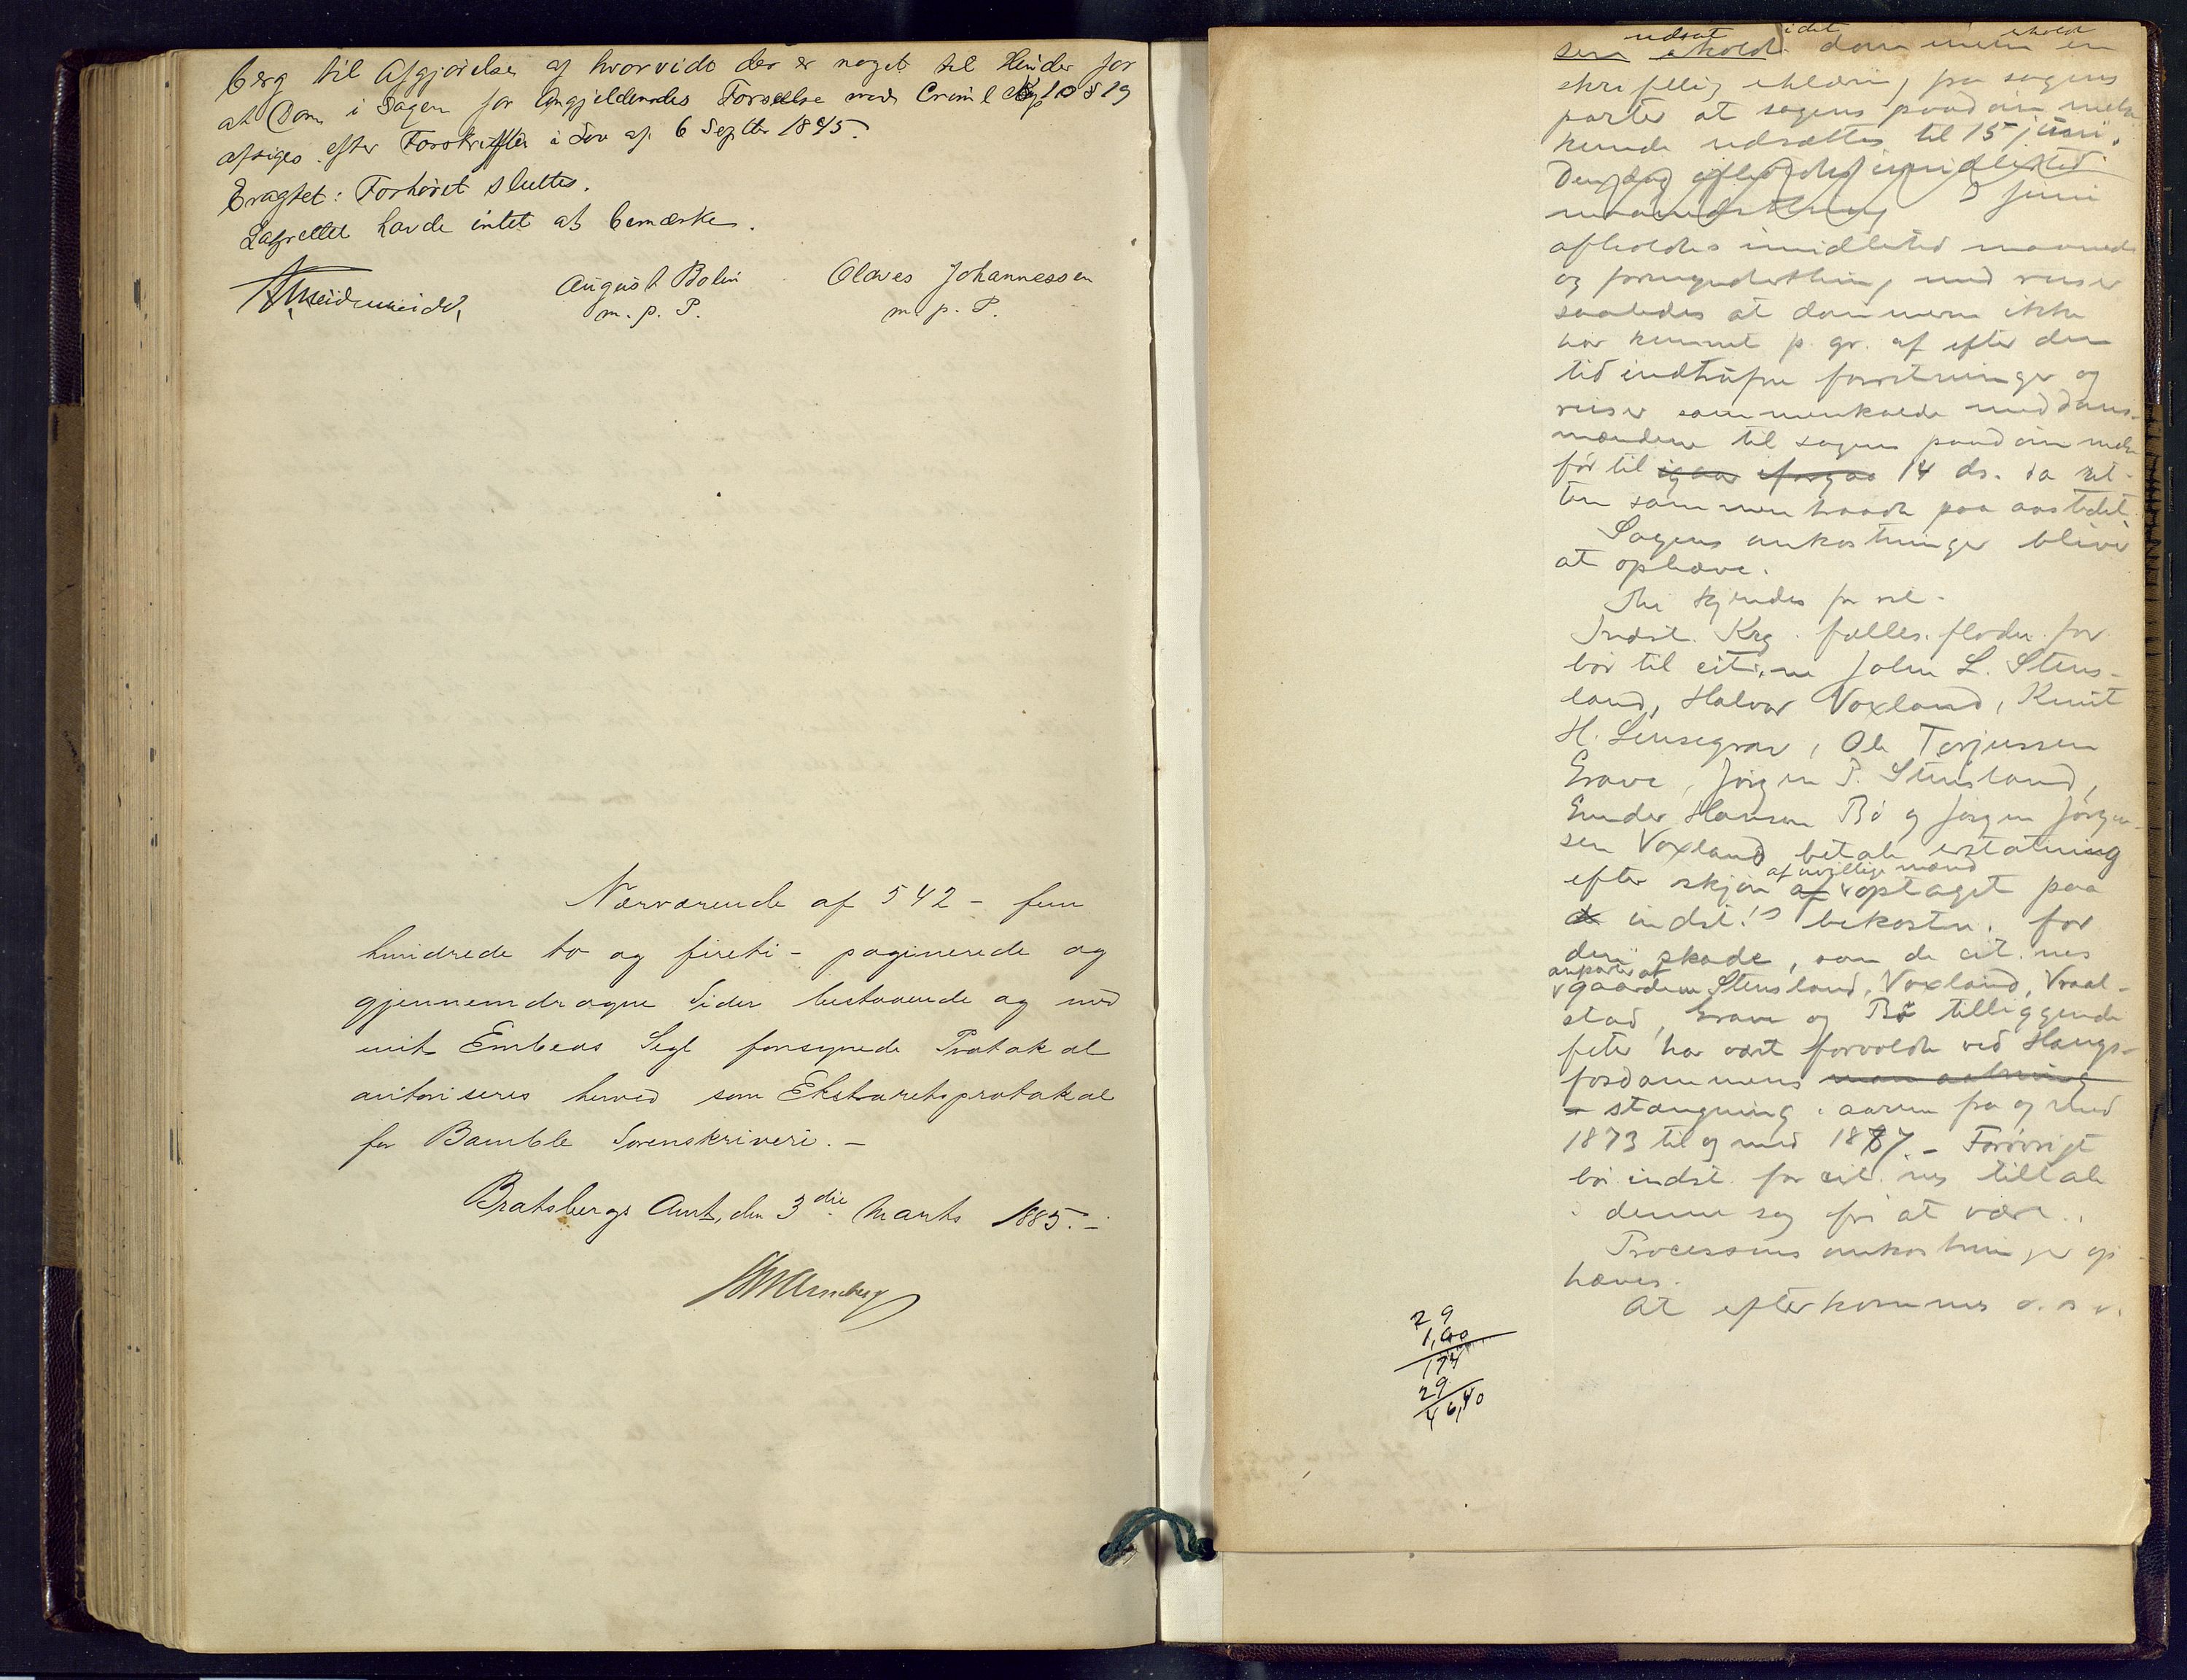 berg til Afgjørelse af hvorvidt der er noget til Hinder for
at Dom i Sagen for Angjeldendes Forseelse mod Criml Cap 10 § 19
afsiges efter Forskriften i Lov af 6 Septbr 1845.
Eragtet: Forhøret sluttes.
Lagrettet havde intet at bemærke.
August Bolin Olaves Johannessen
m. p. P. m. p. P.
Nærværende af 542 - fem
hundrede to og fireti - paginerede og
gjennemdragne Sider bestaaende og med
mit Embeds Segl forsynede Protokol
autoriseres herved som Ekstraretsprotokol
for Bamble Sorenskriveri. -
Bratsbergs Amt, den 3die Marts 1885. -
udsat idet
dommeren en
skriftlig erklæring fra sagens
parter at sagens paadømmelse
kunde udsættes til 15 juni.
2 juni
afholdtes imidlertid
og med reiser
saaledes at dommeren ikke
har kunnet p. gr. af efter den
tid indtrufne forretninger og
reiser sammenkalde meddoms-
mændene til sagens paadømmelse
før til igaar 14 ds. da ret-
ten sammentraadte paa aastedet.
Sagens omkostninger bliver
at ophæve.
Thi kjendes for ret -
Indst. Krg. fælles. floder. for
bør til cit.ne John L. Stens-
land, Halvor Voxland, Knut
H. , Ole Terjussen
Grave, Jørgen P. Stensland,
Gunder Hansen Bø og Jørgen Jørgen-
sen Voxland betale erstatning
af uvillige mænd
efter skjøn af optaget paa
indst.s bekostn. for
den skade, som de cit.nes
anparter af
gaardene Stensland, Voxland, Vraal-
stad, Grave og Bø tilliggende
har vært forvoldt ved Haugs-
fosdammens
stængning i aarene fra og med
1873 til og med 1887. - Forøvrigt
bør indst. for cit.nes tiltale
i denne sag fri at være.
Processens omkostninger op
hæves.
At efterkommes o. s. v.
29
1,60
174
29
46,40